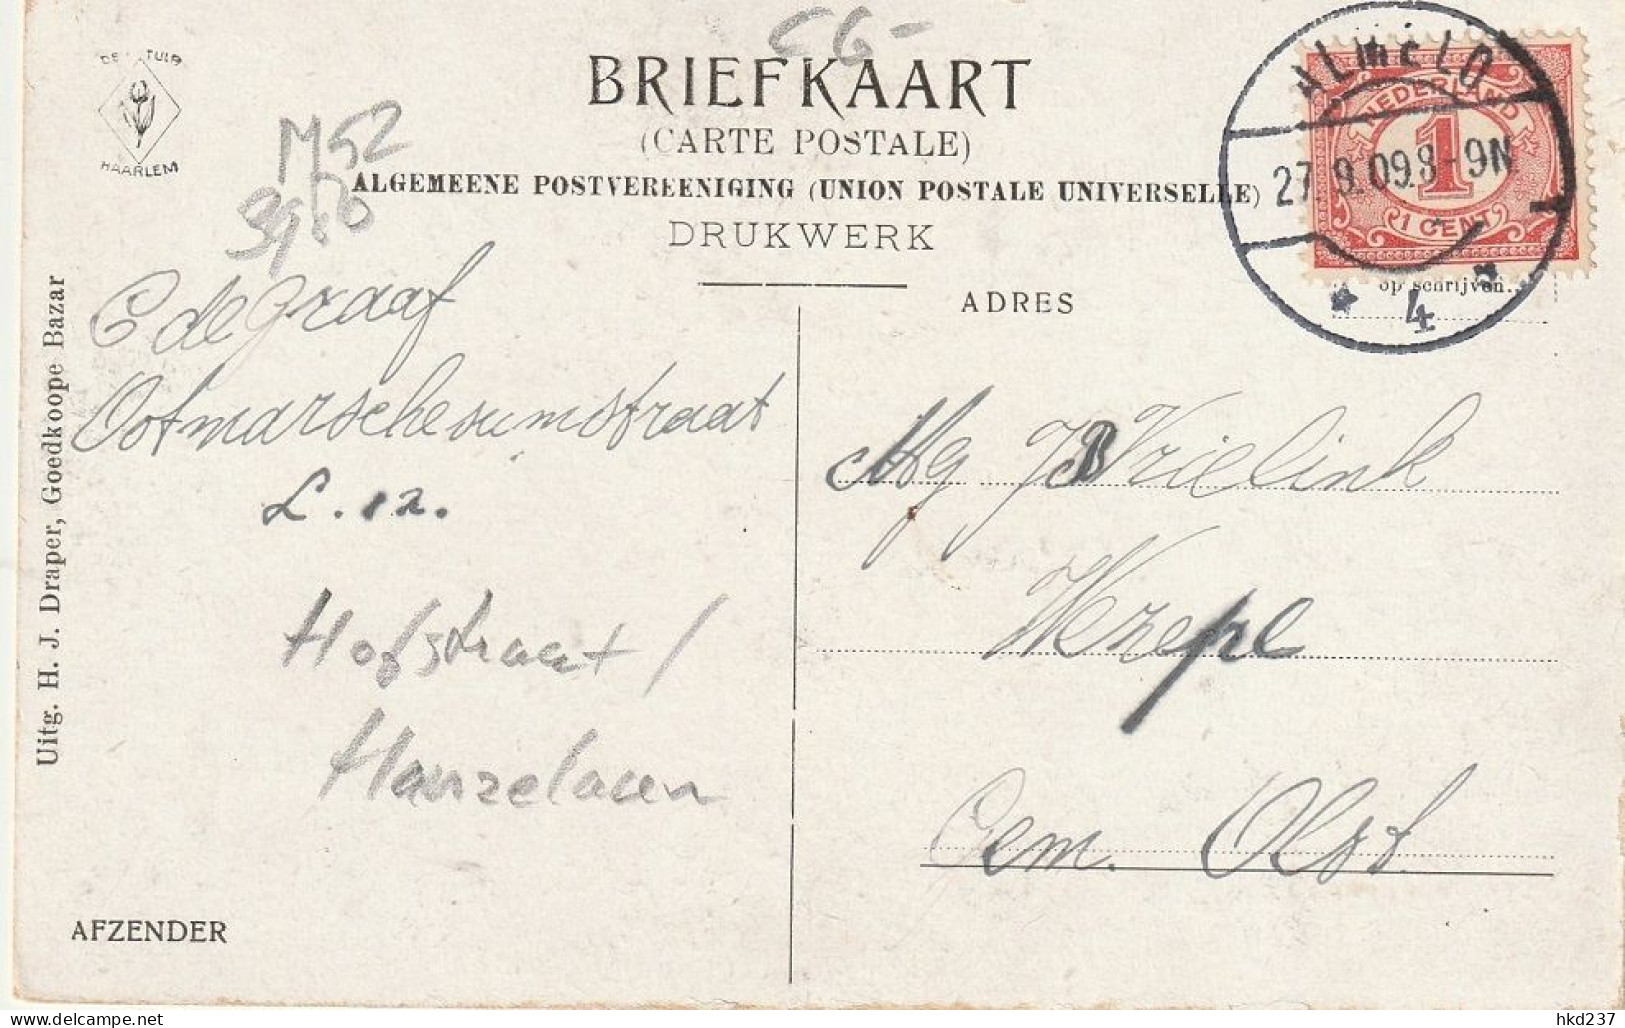 CG-
BRIEFKAART
(CARTE POSTALE)
ALGEMEENE POSTVEREENIGING (UNION POSTALE UNIVERSELLE)
DRUKWERK
HAARLEM
M52
ALMELO
27. 9. 09 8-9N
4
NEDERLAND
1
1 CENT
op schrijven..
ADRES
C de Graaf
Ootmarschesumstraat
L. 12.
Hofstraat /
Hanzelaan
Uitg. H. J. Draper, Goedkoope Bazar
AFZENDER
Mej J B Vrielink
Wezepe
Gem. Olst.
www.delcampe.net
hkd237